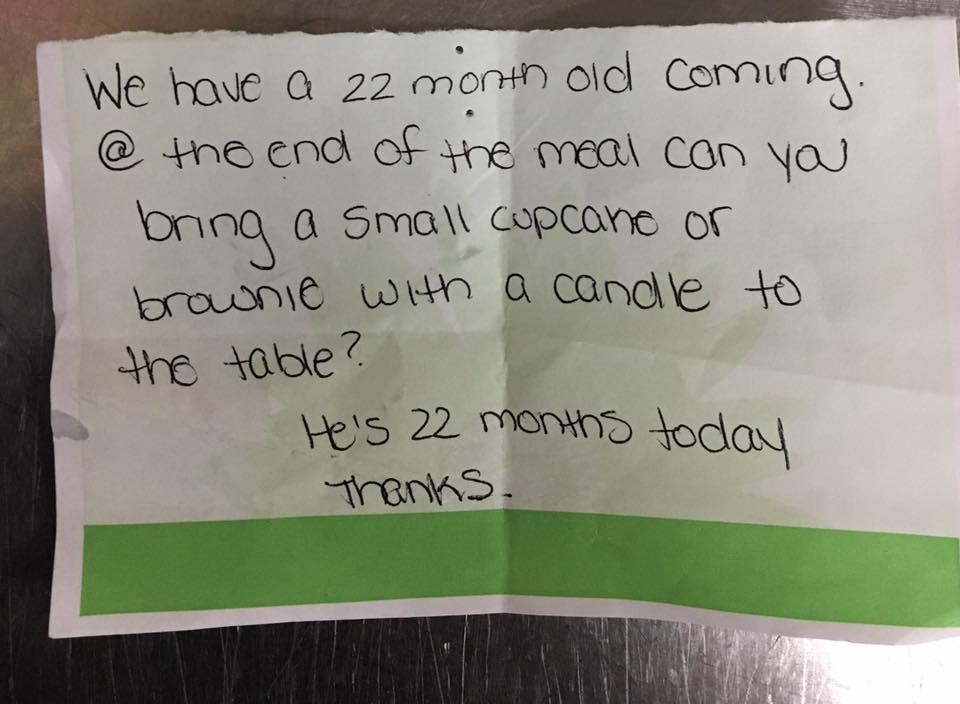 We have a 22 month old coming.
@ the end of the meal can you
bring a small cupcake or
brownie with a candle to
the table?
He's 22 months today
Thanks.